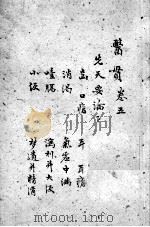 醫貫卷五
先天要論
齒口瘡 并耳瘡
消渴 氣虛中滿
噎膈 瀉利并大便
小便 夢遺并精滑